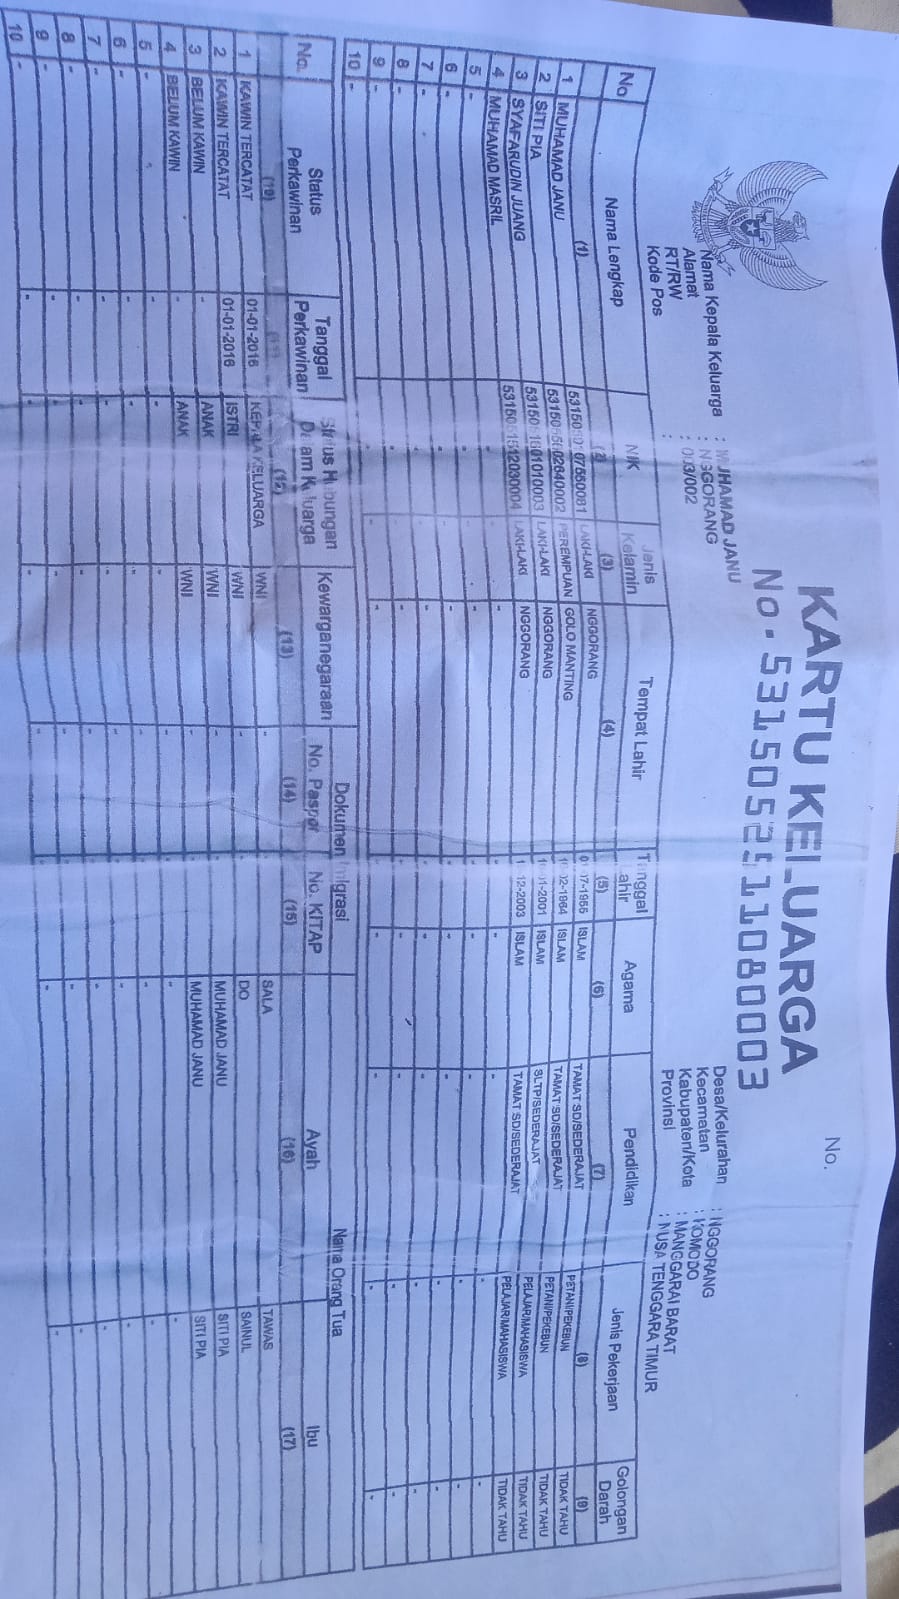 No.
KARTU KELUARGA
No. 5315052511080003
Nama Kepala Keluarga : MUHAMAD JANU
Alamat : NGGORANG
RT/RW : 003/002
Kode Pos :
Desa/Kelurahan : NGGORANG
Kecamatan : KOMODO
Kabupaten/Kota : MANGGARAI BARAT
Provinsi : NUSA TENGGARA TIMUR
No Nama Lengkap NIK Jenis Kelamin Tempat Lahir Tanggal Lahir Agama Pendidikan Jenis Pekerjaan Golongan Darah
(1) (2) (3) (4) (5) (6) (7) (8) (9)
1 MUHAMAD JANU LAKI-LAKI NGGORANG ISLAM TAMAT SD/SEDERAJAT PETANI/PEKEBUN TIDAK TAHU
2 SITI PIA PEREMPUAN GOLO MANTING ISLAM TAMAT SD/SEDERAJAT PETANI/PEKEBUN TIDAK TAHU
3 SYAFARUDIN JUANG LAKI-LAKI NGGORANG ISLAM SLTP/SEDERAJAT PELAJAR/MAHASISWA TIDAK TAHU
4 MUHAMAD MASRIL LAKI-LAKI NGGORANG ISLAM TAMAT SD/SEDERAJAT PELAJAR/MAHASISWA TIDAK TAHU
5 - - - - - - - - -
6 - - - - - - - - -
7 - - - - - - - - -
8 - - - - - - - - -
9 - - - - - - - - -
10 - - - - - - - - -
No. Status Perkawinan Tanggal Perkawinan Status Hubungan Dalam Keluarga Kewarganegaraan Dokumen Imigrasi Nama Orang Tua
No. Paspor No. KITAP Ayah Ibu
(10) (11) (12) (13) (14) (15) (16) (17)
1 KAWIN TERCATAT 01-01-2016 KEPALA KELUARGA WNI - - SALA TAWAS
2 KAWIN TERCATAT 01-01-2016 ISTRI WNI - - DO SAINUL
3 BELUM KAWIN - ANAK WNI - - MUHAMAD JANU SITI PIA
4 BELUM KAWIN - ANAK WNI - - MUHAMAD JANU SITI PIA
5 - - - - - - - -
6 - - - - - - - -
7 - - - - - - - -
8 - - - - - - - -
9 - - - - - - - -
10 - - - - - - - -